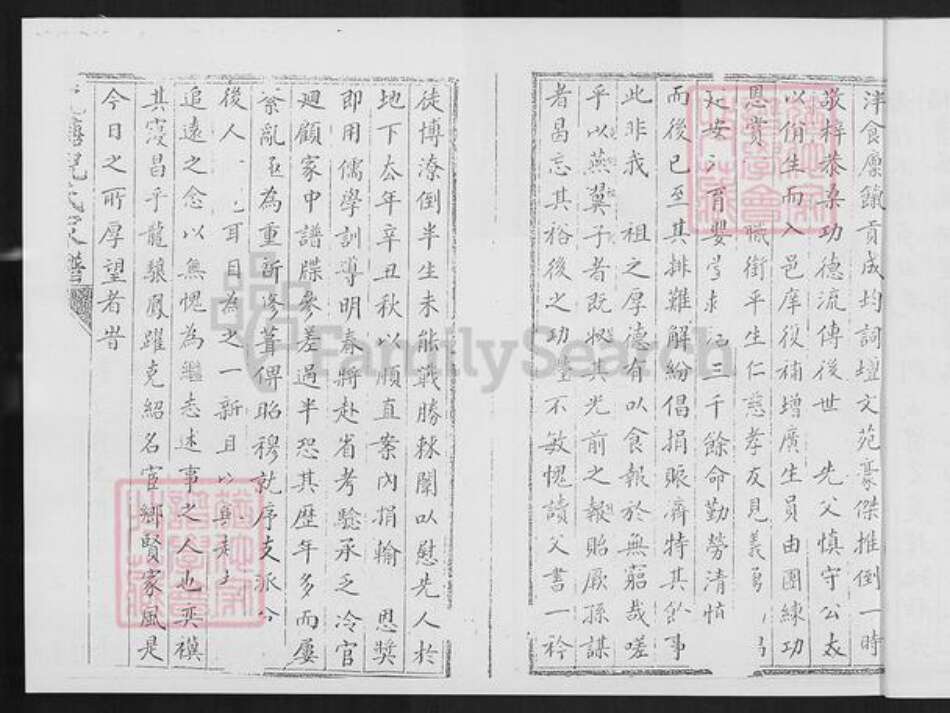 泮食廩餼貢成均詞壇文苑豪傑推倒一時
敬梓恭桑功德流傳後世 先父慎守公太
以俏生而入邑庠役補增廣生員由團練功
恩賞 職銜平生仁慈孝友見義勇
安 育嬰堂 三千餘命勤勞清慎
而後已至其排難解紛倡捐賑濟特其餘事
此非我 祖之厚德有以食報於無窮哉嗟
乎以燕翼子者既狀其光前之報貽厥孫謀
者曷忘其裕後之功 不敏愧讀父書一衿
徒博潦倒半生未能戰勝棘闈以慰先人於
地下去年辛丑秋以順直案內捐輸 恩獎
即用儒學訓導明春將赴省考驗承乏冷官
迴顧家中譜牒參差過半恐其歷年多而屢
紊亂亟為重新修葺俾昭穆就序支派分
後人 耳目為之一新且以
追遠之念以無愧為繼志述事之人也奕禩
其寖昌乎龍驤鳳躍克紹名宦鄉賢家風是
今日之所厚望者昔
氏家譜
FamilySearch